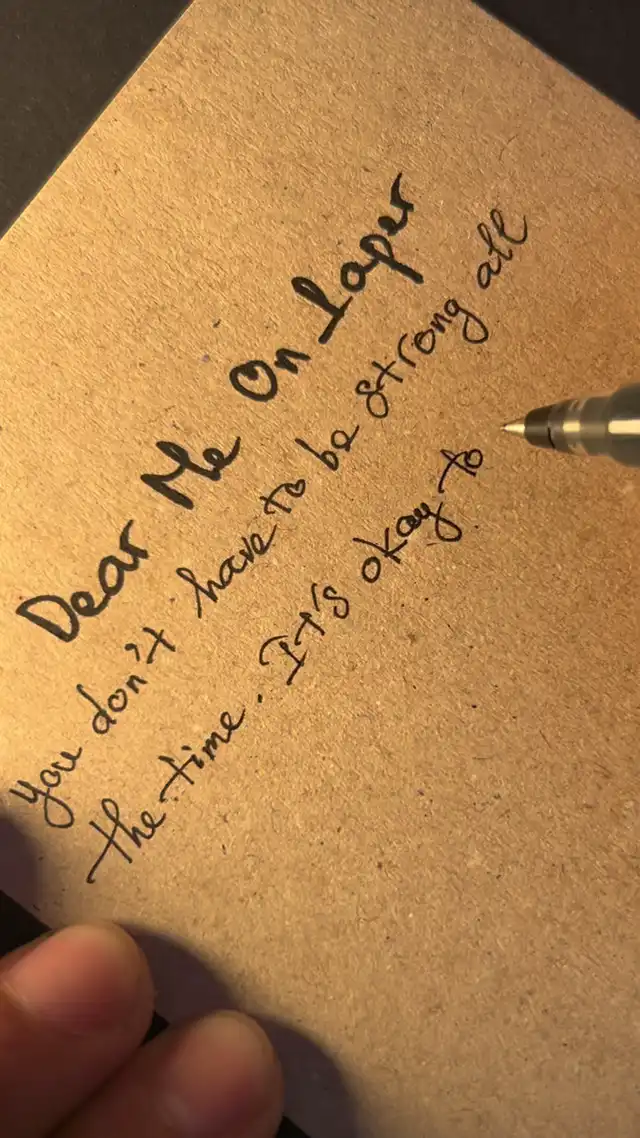 Dear Me On Paper
you don't have to be strong all
the time. It's okay to